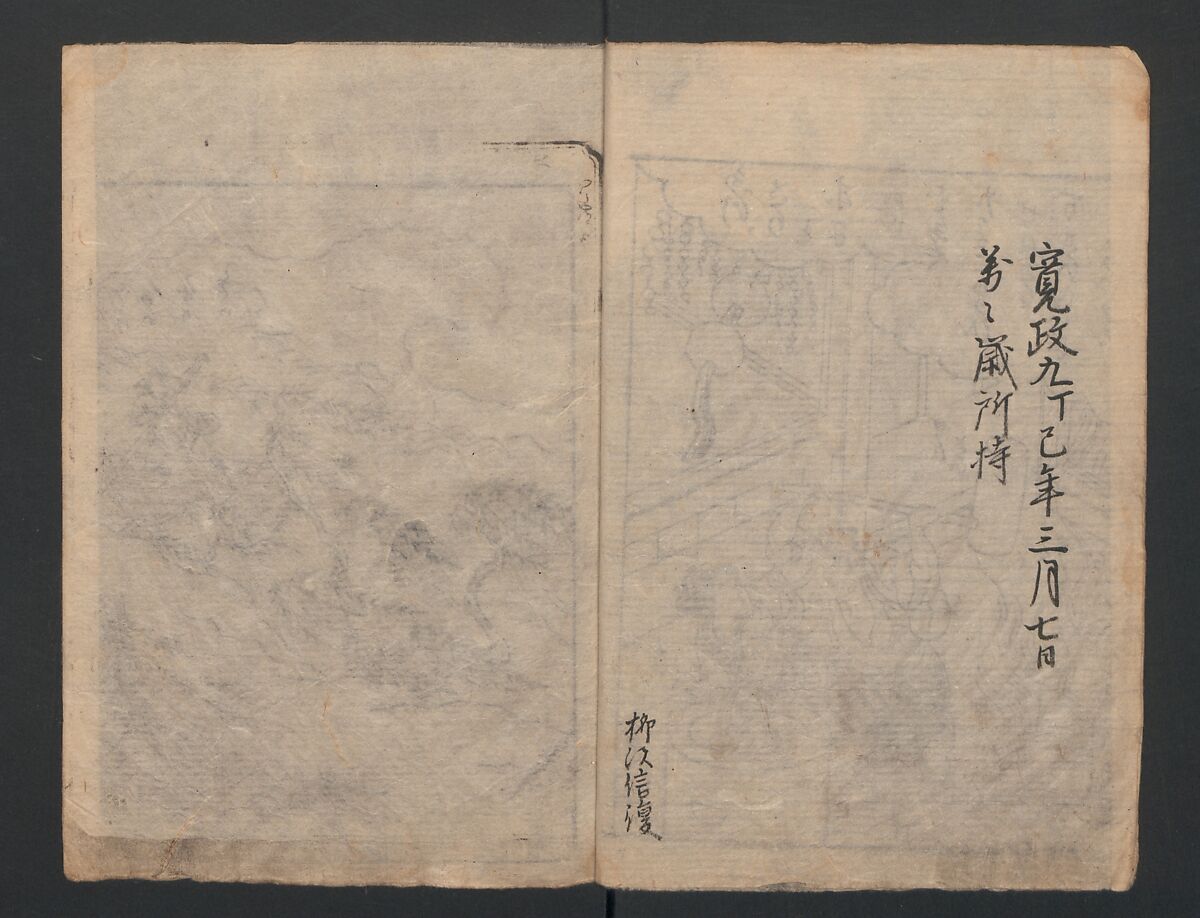 寛政九丁巳年三月七日
万々歳所持
柳沢信復